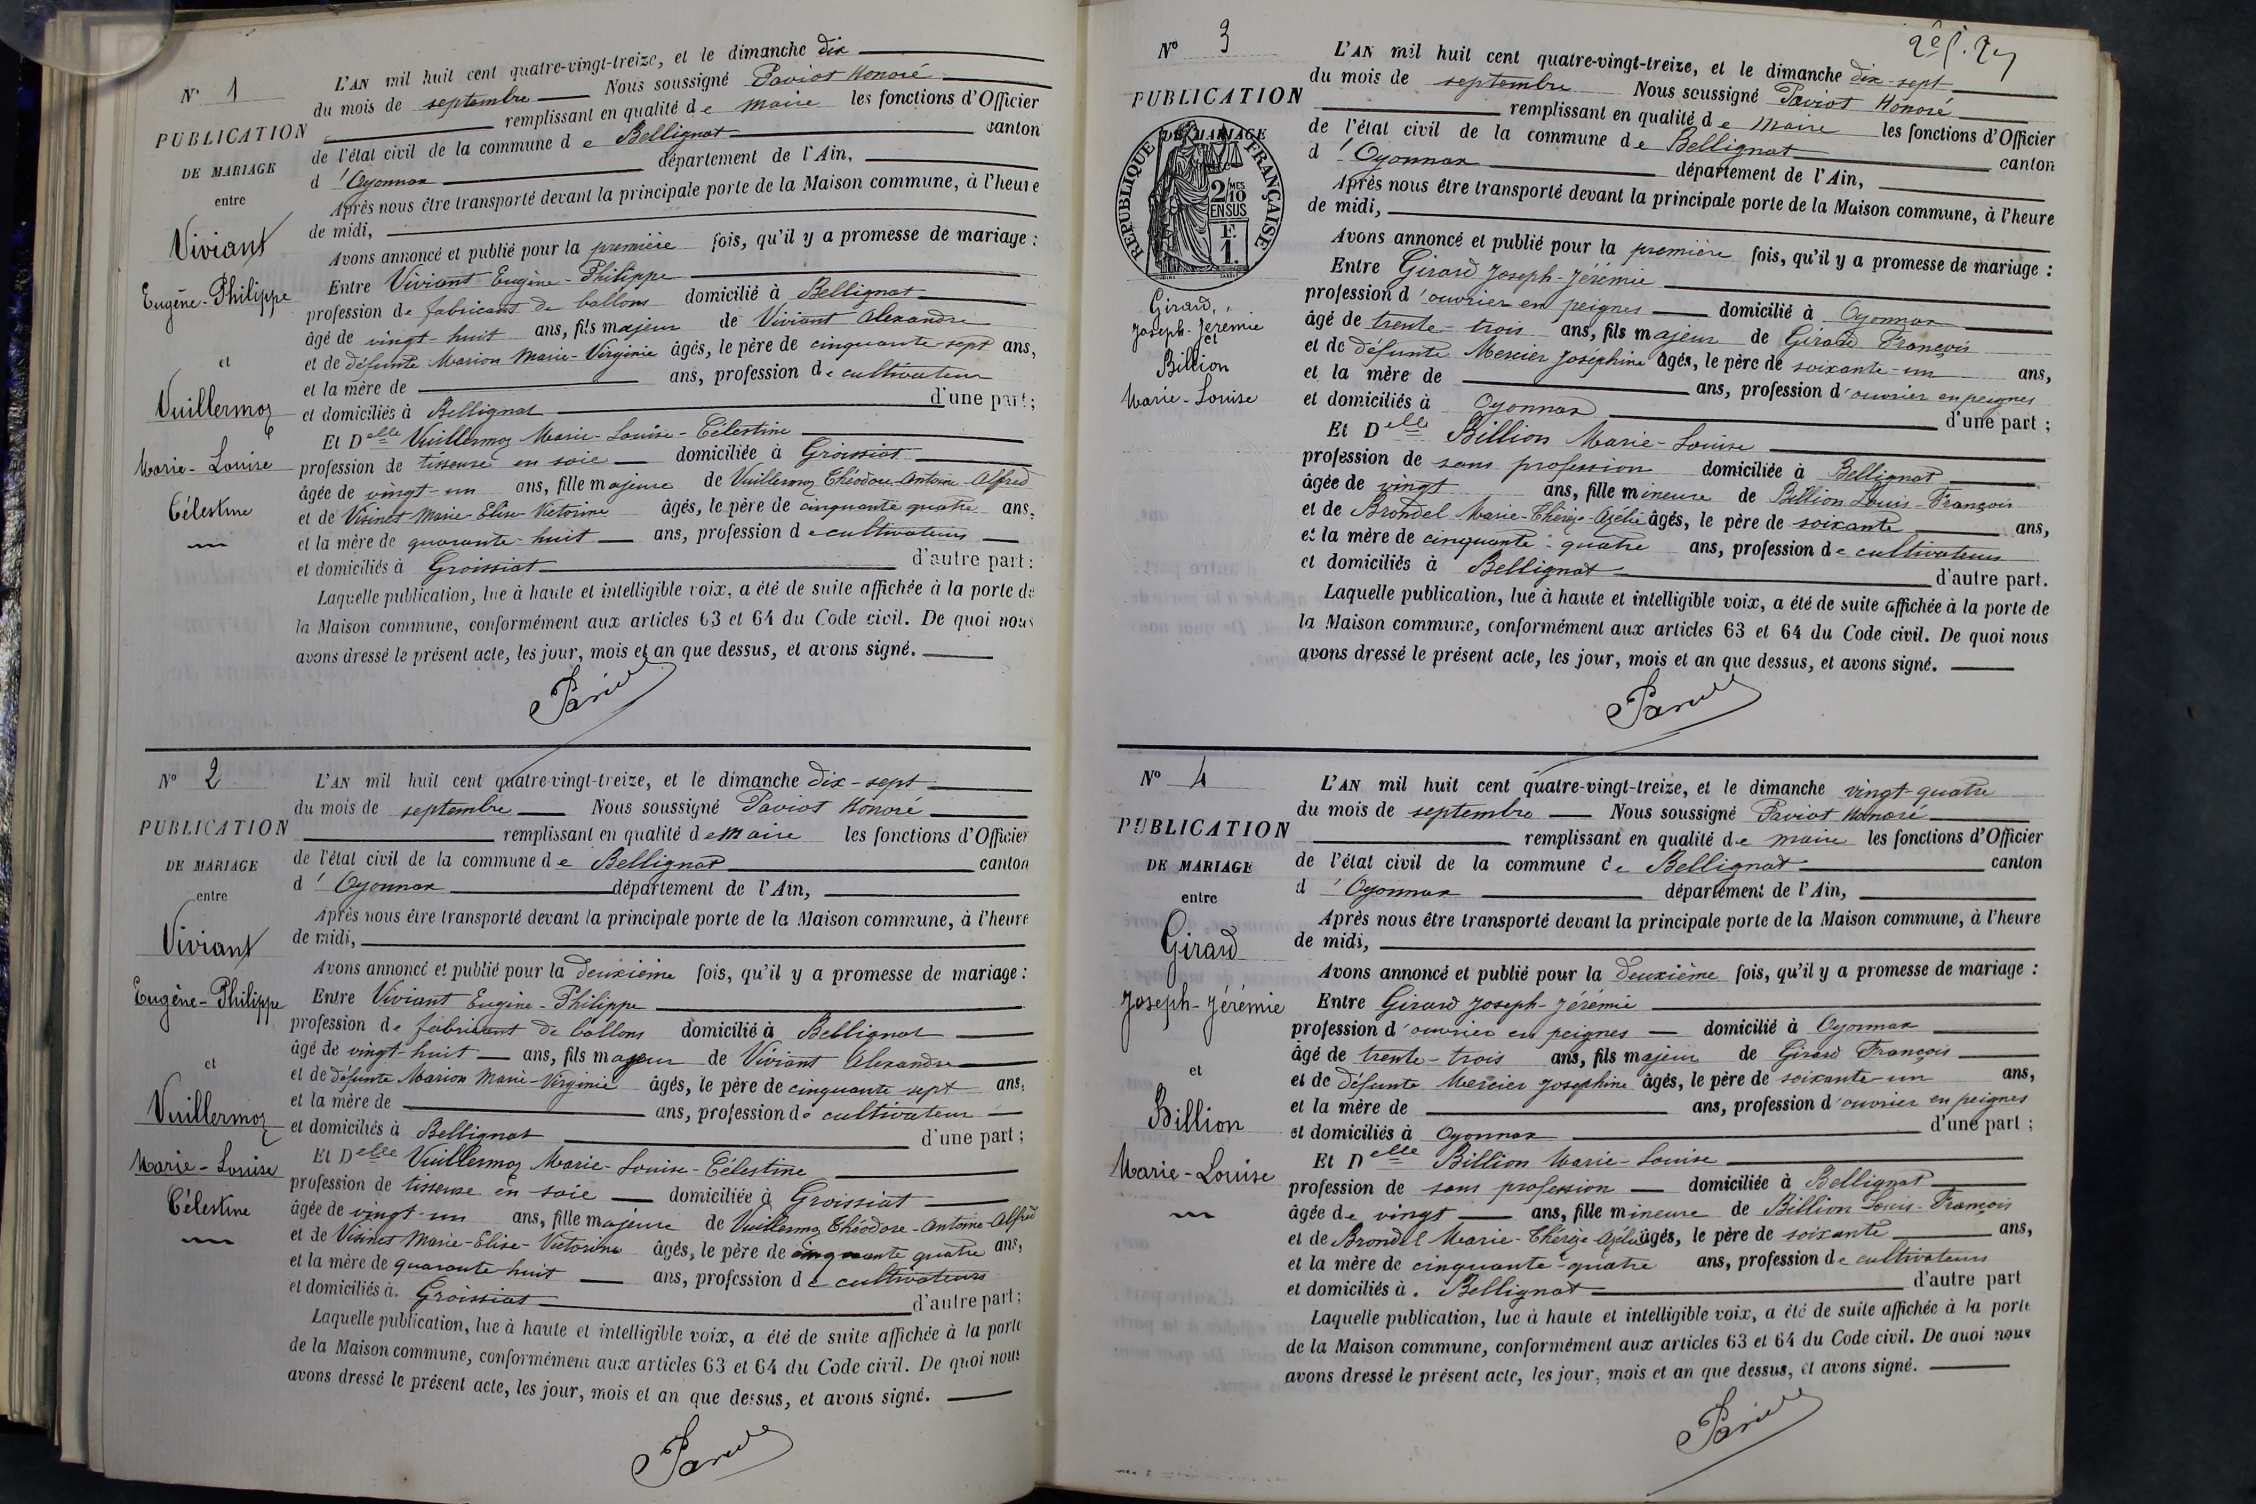 N° 1
PUBLICATION
DE MARIAGE
entre
Viviant
Eugène-Philippe
et
Vuillermoz
Marie-Louise
Célestine
L'AN mil huit cent quatre-vingt-treize, et le dimanche dix
du mois de septembre Nous soussigné Paviot Honoré
remplissant en qualité de maire les fonctions d'Officier
de l'état civil de la commune de Bellignat canton
d'Oyonnax département de l'Ain,
Après nous être transporté devant la principale porte de la Maison commune, à l'heure
de midi,
Avons annoncé et publié pour la première fois, qu'il y a promesse de mariage :
Entre Viviant Eugène-Philippe
profession de fabricant de ballons domicilié à Bellignat
âgé de vingt-huit ans, fils majeur de Viviant Alexandre
et de défunte Marion Marie-Virginie âgés, le père de cinquante-sept ans,
et la mère de ans, profession de cultivateur
et domiciliés à Bellignat d'une part;
Et Delle Vuillermoz Marie-Louise-Célestine
profession de tisseuse en soie domiciliée à Groissiat
âgée de vingt-un ans, fille majeure de Vuillermoz Théodore-Antoine-Alfred
et de Visinet Marie-Elise-Victorine âgés, le père de cinquante quatre ans,
et la mère de quarante-huit ans, profession de cultivateurs
et domiciliés à Groissiat d'autre part:
Laquelle publication, lue à haute et intelligible voix, a été de suite affichée à la porte de
la Maison commune, conformément aux articles 63 et 64 du Code civil. De quoi nous
avons dressé le présent acte, les jour, mois et an que dessus, et avons signé.
N° 2
PUBLICATION
DE MARIAGE
entre
Viviant
Eugène-Philippe
et
Vuillermoz
Marie-Louise
Célestine
L'AN mil huit cent quatre-vingt-treize, et le dimanche dix-sept
du mois de septembre Nous soussigné Paviot Honoré
remplissant en qualité de maire les fonctions d'Officier
de l'état civil de la commune de Bellignat canton
d'Oyonnax département de l'Ain,
Après nous être transporté devant la principale porte de la Maison commune, à l'heure
de midi,
Avons annoncé et publié pour la deuxième fois, qu'il y a promesse de mariage :
Entre Viviant Eugène-Philippe
profession de fabricant de ballons domicilié à Bellignat
âgé de vingt-huit ans, fils majeur de Viviant Alexandre
et de défunte Marion Marie-Virginie âgés, le père de cinquante sept ans,
et la mère de ans, profession de cultivateur
et domiciliés à Bellignat d'une part ;
Et Delle Vuillermoz Marie-Louise-Célestine
profession de tisseuse en soie domiciliée à Groissiat
âgée de vingt-un ans, fille majeure de Vuillermoz Théodore-Antoine-Alfred
et de Visinet Marie-Elise-Victorine âgés, le père de cinquante quatre ans,
et la mère de quarante-huit ans, profession de cultivateurs
et domiciliés à. Groissiat d'autre part;
Laquelle publication, lue à haute et intelligible voix, a été de suite affichée à la porte
de la Maison commune, conformément aux articles 63 et 64 du Code civil. De quoi nous
avons dressé le présent acte, les jour, mois et an que dessus, et avons signé.
N° 3
PUBLICATION
DE MARIAGE
REPUBLIQUE FRANÇAISE
2/10 MES
EN SUS
F.
1.
Girard,
Joseph-Jérémie
et
Billion
Marie-Louise
L'AN mil huit cent quatre-vingt-treize, et le dimanche dix-sept
du mois de septembre Nous soussigné Paviot Honoré
remplissant en qualité de maire les fonctions d'Officier
de l'état civil de la commune de Bellignat canton
d'Oyonnax département de l'Ain,
Après nous être transporté devant la principale porte de la Maison commune, à l'heure
de midi,
Avons annoncé et publié pour la première fois, qu'il y a promesse de mariage :
Entre Girard Joseph-Jérémie
profession d'ouvrier en peignes domicilié à Oyonnax
âgé de trente-trois ans, fils majeur de Girard François
et de défunte Mercier Joséphine âgés, le père de soixante-un ans,
et la mère de ans, profession d'ouvrier en peignes
et domiciliés à Oyonnax d'une part ;
Et Delle Billion Marie-Louise
profession de sans profession domiciliée à Bellignat
âgée de vingt ans, fille mineure de Billion Louis-François
et de Brondel Marie-Thérèze-Azélie âgés, le père de soixante ans,
et la mère de cinquante-quatre ans, profession de cultivateurs
et domiciliés à Bellignat d'autre part.
Laquelle publication, lue à haute et intelligible voix, a été de suite affichée à la porte de
la Maison commune, conformément aux articles 63 et 64 du Code civil. De quoi nous
avons dressé le présent acte, les jour, mois et an que dessus, et avons signé.
N° 4
PUBLICATION
DE MARIAGE
entre
Girard
Joseph-Jérémie
et
Billion
Marie-Louise
L'AN mil huit cent quatre-vingt-treize, et le dimanche vingt-quatre
du mois de septembre Nous soussigné Paviot Honoré
remplissant en qualité de maire les fonctions d'Officier
de l'état civil de la commune de Bellignat canton
d'Oyonnax département de l'Ain,
Après nous être transporté devant la principale porte de la Maison commune, à l'heure
de midi,
Avons annoncé et publié pour la deuxième fois, qu'il y a promesse de mariage :
Entre Girard Joseph-Jérémie
profession d'ouvrier en peignes domicilié à Oyonnax
âgé de trente-trois ans, fils majeur de Girard François
et de défunte Mercier Josephine âgés, le père de soixante-un ans,
et la mère de ans, profession d'ouvrier en peignes
et domiciliés à Oyonnax d'une part ;
Et Delle Billion Marie-Louise
profession de sans profession domiciliée à Bellignat
âgée de vingt ans, fille mineure de Billion Louis-François
et de Brondel Marie-Thérèze-Azélie âgés, le père de soixante ans,
et la mère de cinquante-quatre ans, profession de cultivateurs
et domiciliés à. Bellignat d'autre part
Laquelle publication, lue à haute et intelligible voix, a été de suite affichée à la porte
de la Maison commune, conformément aux articles 63 et 64 du Code civil. De quoi nous
avons dressé le présent acte, les jour, mois et an que dessus, et avons signé.